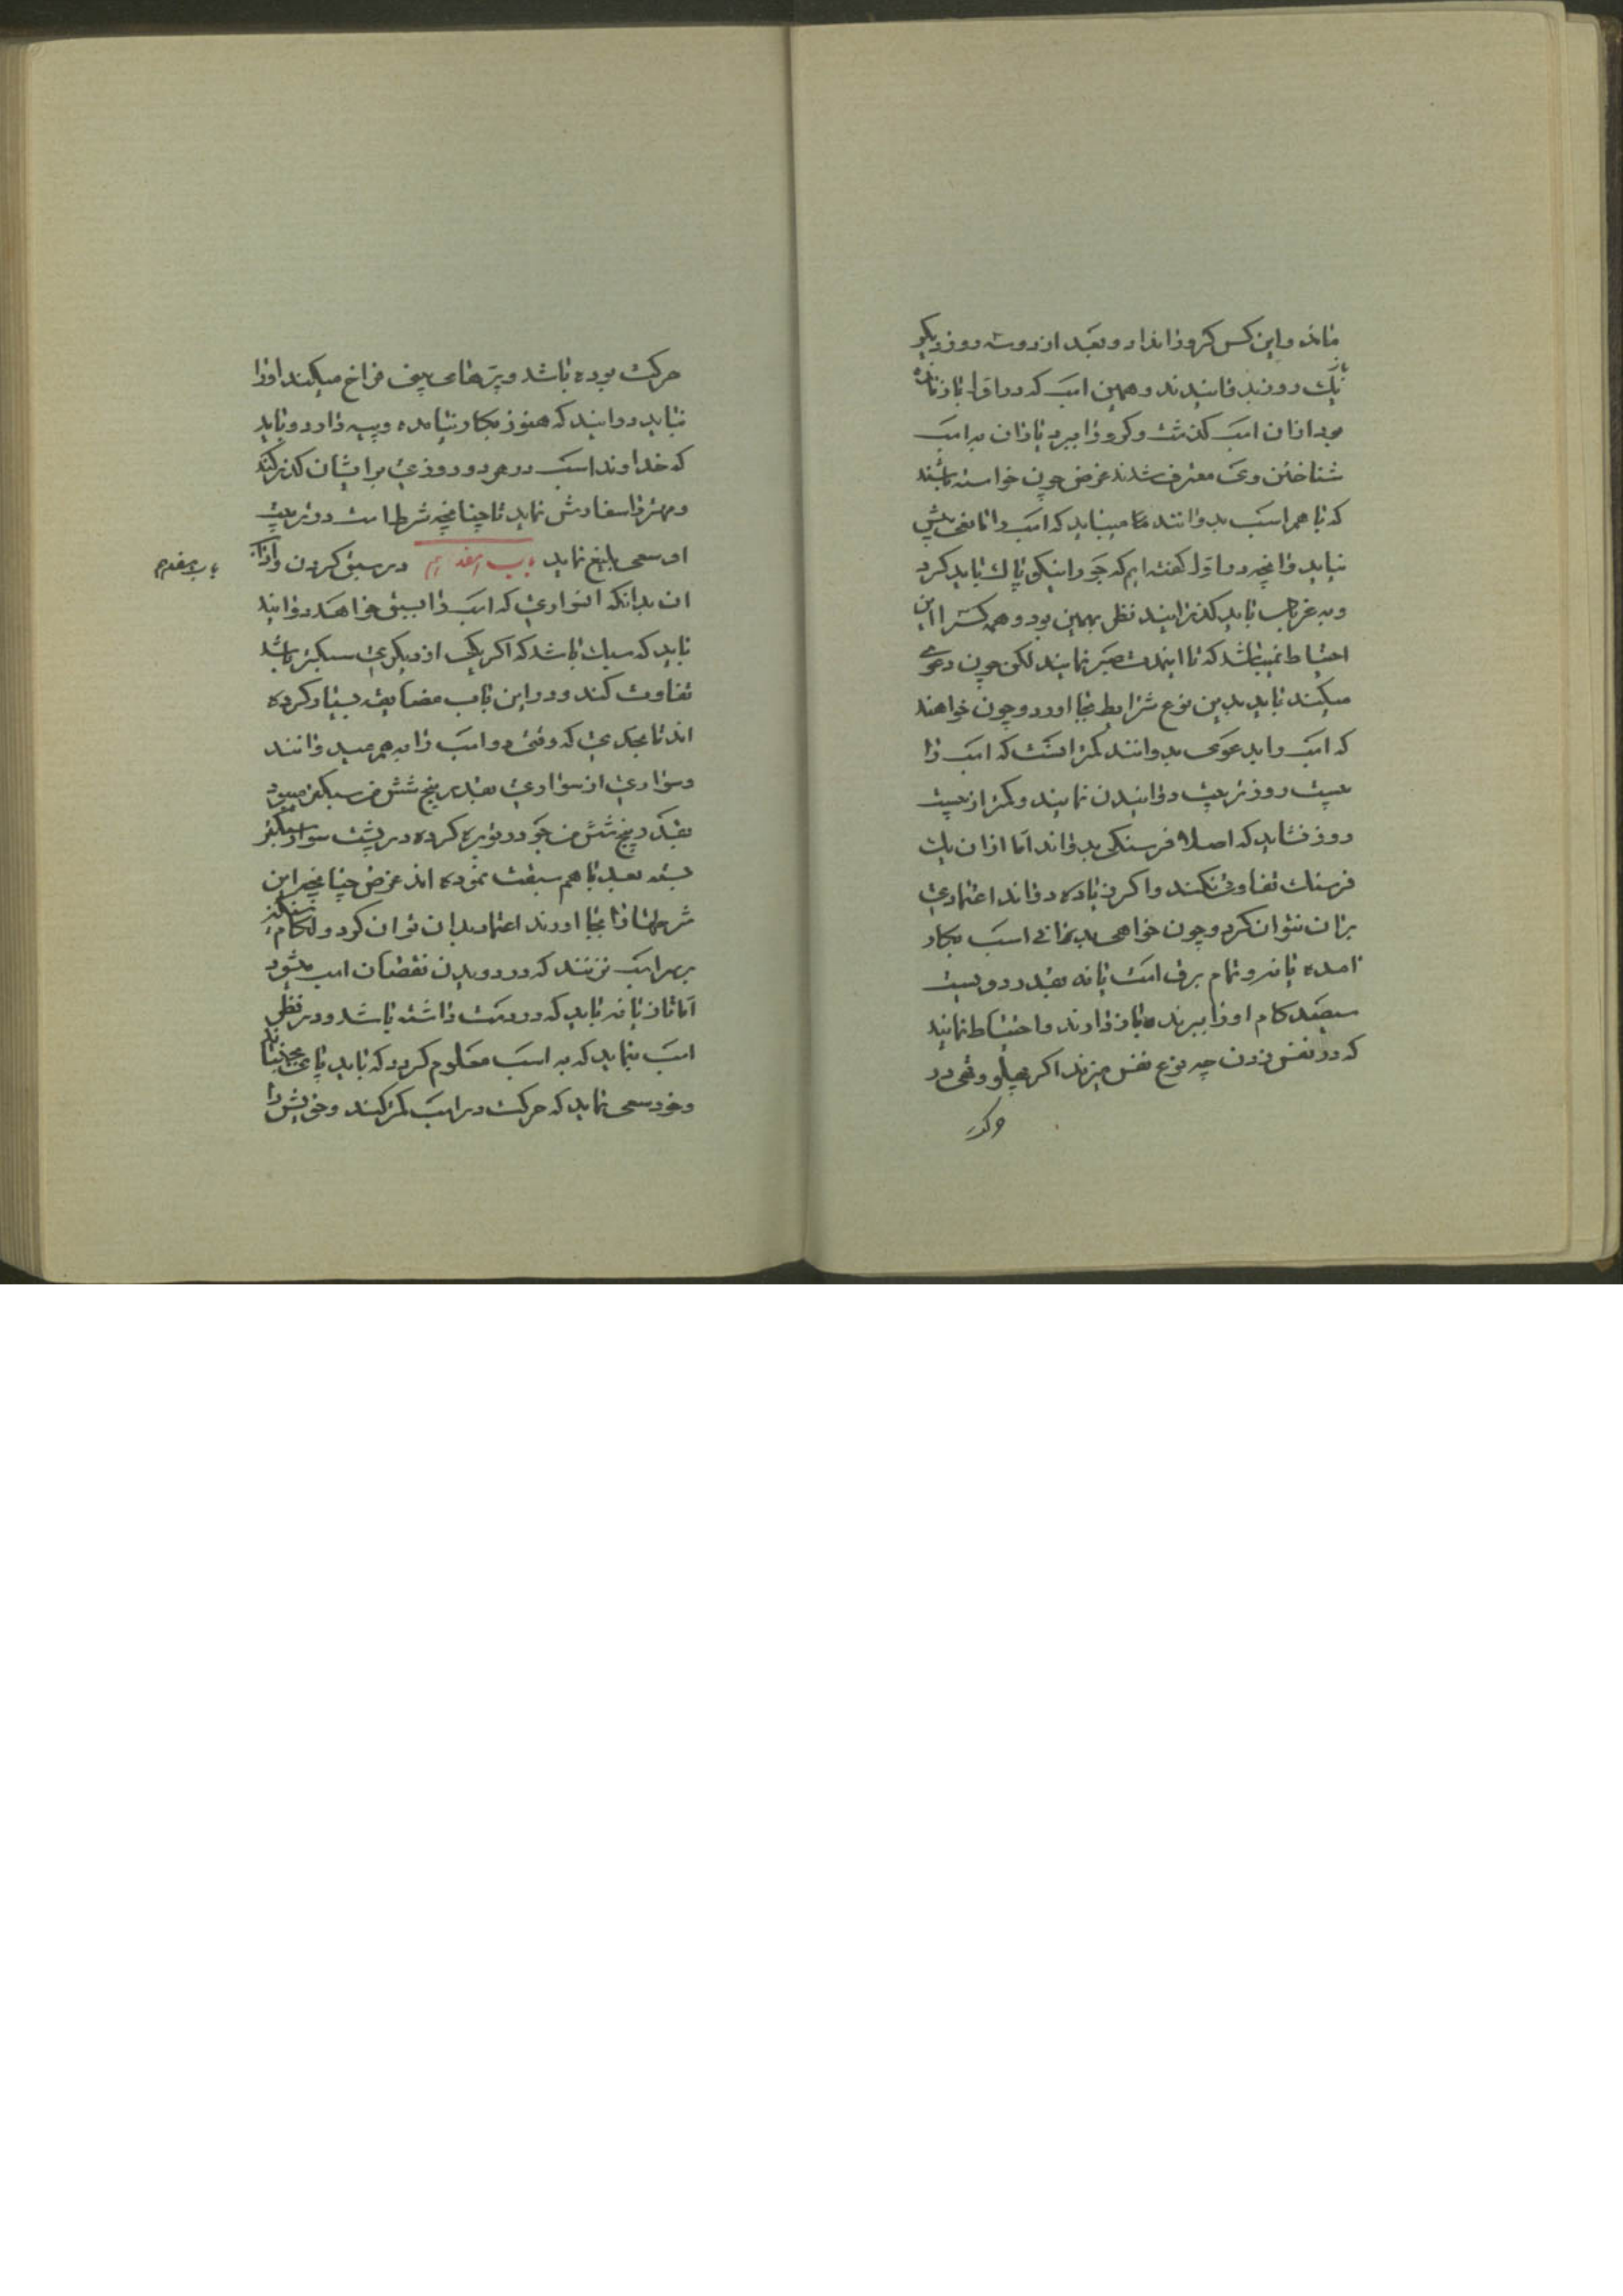 مانده و این کس کرو را ندارد و بعد از دو سه روز دیکر
باز
نیك دویند دوانیدند و همین اسب که در اول باز مانده
بود از ان اسب کذشت و کرو را ببرد یاران بر اسب
شناختن وی معترف شدند غرض چون خواسته باشند
که با هم اسب بدوانند میباید که اسب را
نباید و انچه در اول کفته ایم که جو را نیکو پاك باید کرد
و به غربال باید کذرانیند بهمین بود و همه کس را این
احتیاط نمیباشد که تا اینمدت صبر نمایند لکن چون دعوی
میکنند باید بدین نوع شرایط بجا اورد و چون خواهند
که اسب را بدعوی بدوانند کمتر انست که اسب را
بیست روز تربیت دوانیدن نمایند و کمتر از بیست
روز نشاید که اصلا فرسنکی بدواند اما از ان یك
فرسنك تفاوتی نکند و اکر زیاده دواند اعتمادی
بران نتوان کرد و چون خواهی بدانی اسب بکار
امده یا نه و تمام برق است یا نه بقدر دویست
سیصد کام او را ببرند و باز دارند و احتیاط نمایند
که در نفس زدن چه نوع نفس میزند اکر پهلو وقتی در
حرکت
حرکت بوده باشد و پره های بینی فراخ میکند او را
نباید دوانید که هنوز بکار نیامده و پیه دارد و باید
که خداوند اسب در هر دو روزی بر ایشان کذر کند
و مهتر را سفارش نماید تا چنانچه شرط است در تربیت
او سعی بلیغ نماید باب هفدهم در سبق کردن و اداب
باب هفدهم
ان بدانکه انسواری که اسب را بسبق خواهد دوانید
باید که سبك باشد که اکر یکی از دیکری سبکتر باشد
تفاوت کند و در این باب مضایقه بسیار کرده
اند تا بحدی که وقتی دو اسب را بهم میدوانند
و سواری از سواری بقدر پنج شش من سبکتر میبود
بقدر پنج شش من جو در توبره کرده در پشت سوار سبکتر
بسته بعد با هم سبقت نموده اند غرض چنانچه این
شرطها را بجا اورند اعتماد بدان توان کرد و لکام سنکین
بر سر اسب نزنند که در دویدن نقصان اسب میشود
اما تازیانه باید که در دست داشته باشد و در نظر
اسب بنماید که به اسب معلوم کردد که باید پای بجنباند
و خود سعی نماید که حرکت در اسب کمتر کند و خویش را